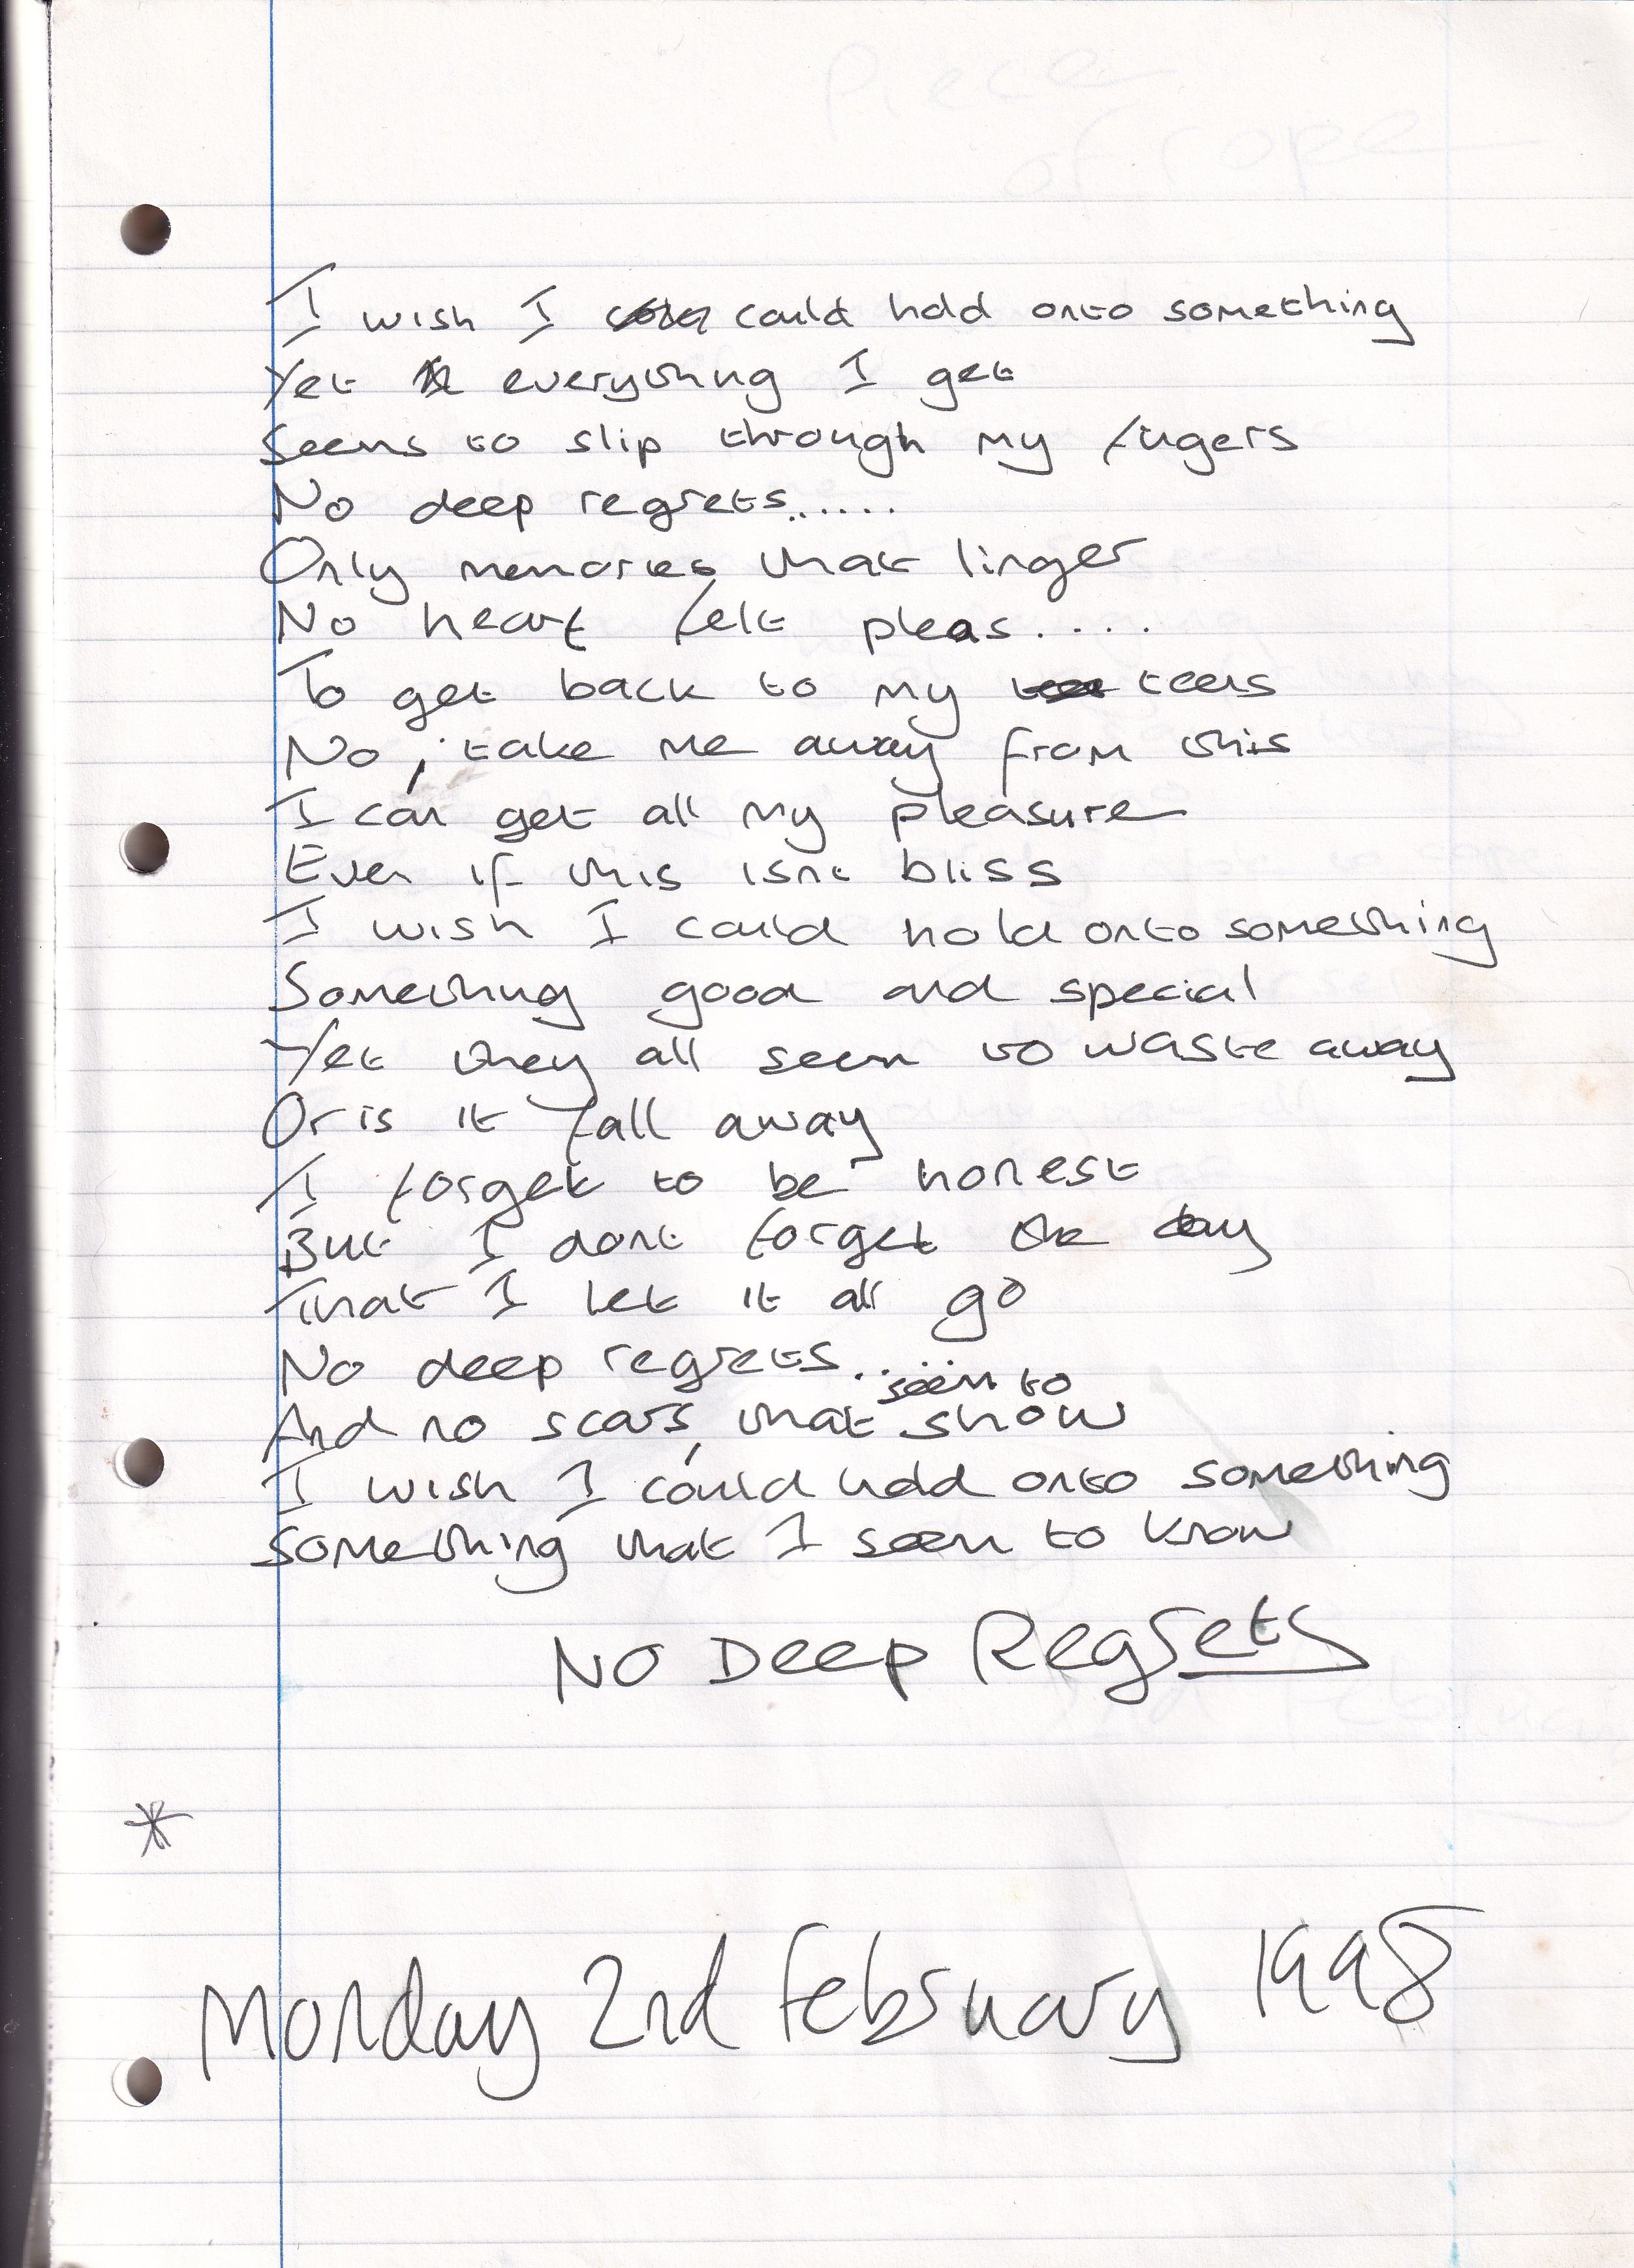 I wish I could hold onto something
Yet everything I get
Seems to slip through my fingers
No deep regrets......
Only memories that linger
No heart felt pleas....
To get back to my teens
No, take me away from this
I can get all my pleasure
Even if this isnt bliss
I wish I could hold onto something
Something good and special
Yet they all seem to waste away
Or is it fall away
I forget to be honest
But I dont forget the day
That I let it all go
No deep regrets.....
seem to
And no scars, that show
I wish I could hold onto something
Something that I seem to know
No Deep Regrets
*
Monday 2nd February 1998